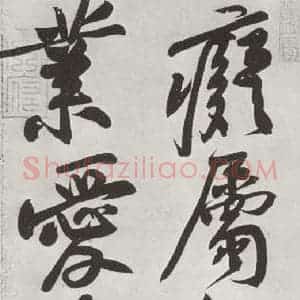 癡屬
業愛
Shufaziliao.com